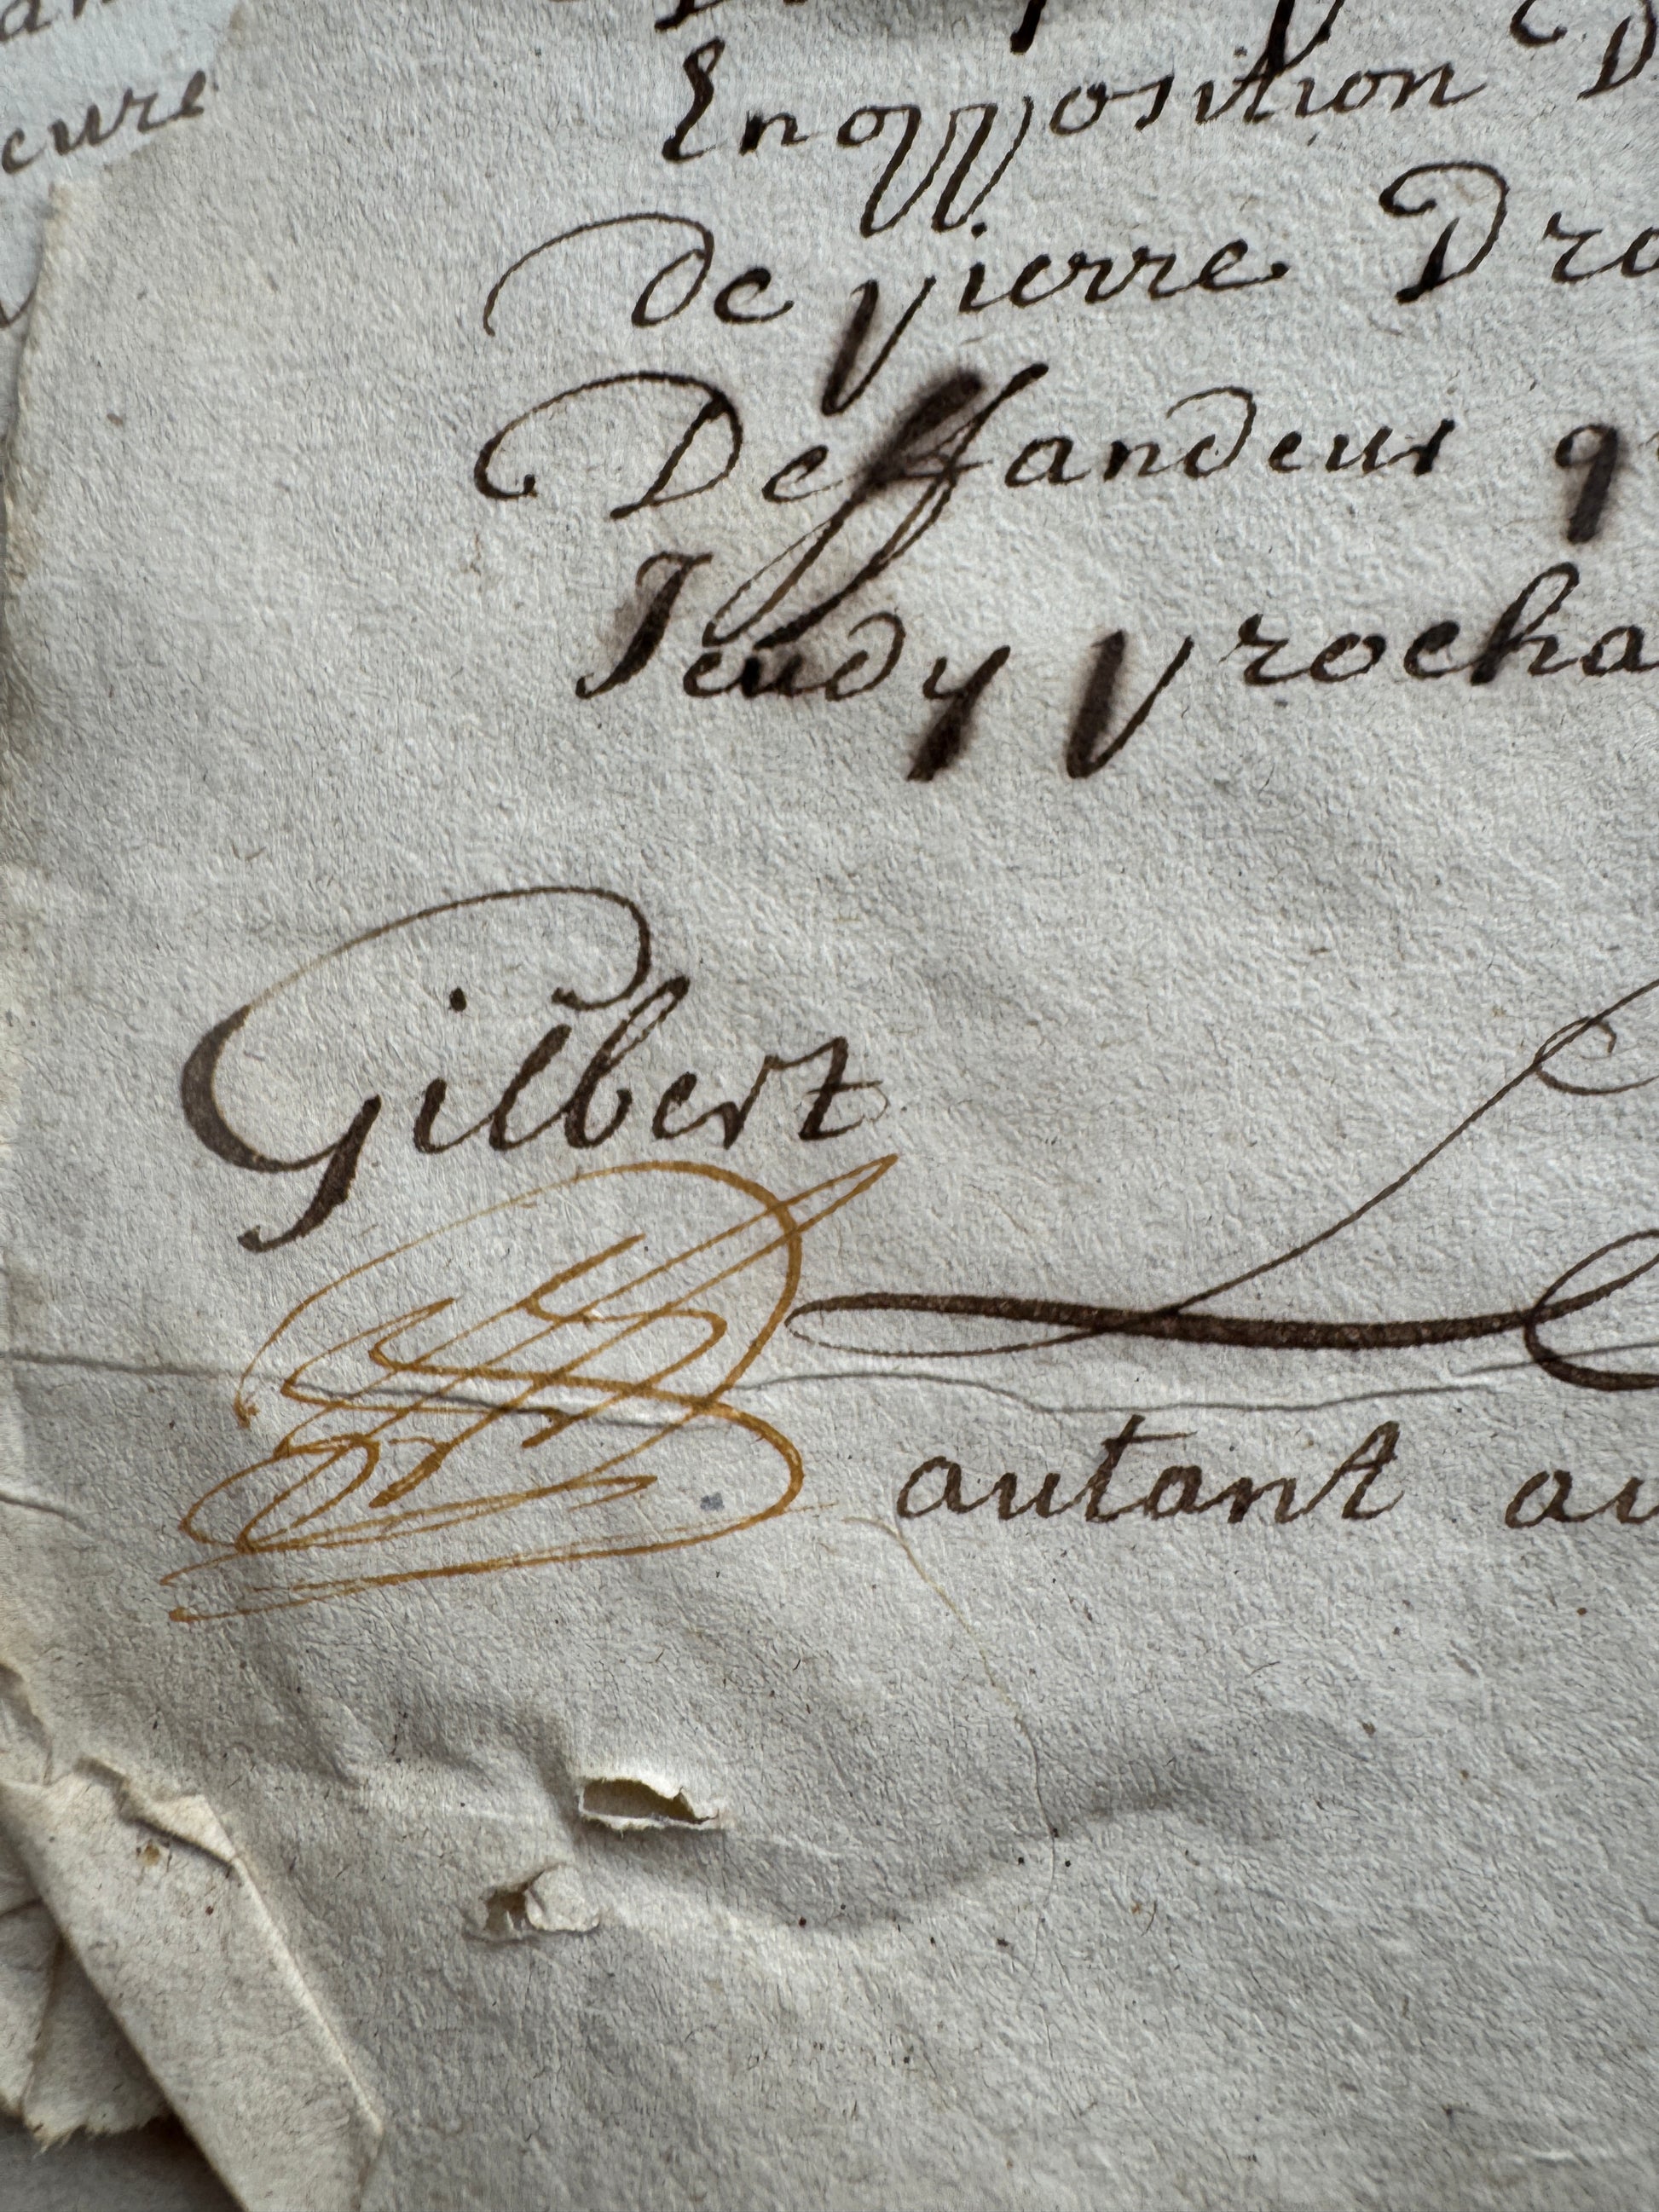 eure
En opposition D
de pierre Dro
Deffandeur q
Jeudy procha
Gilbert
autant au